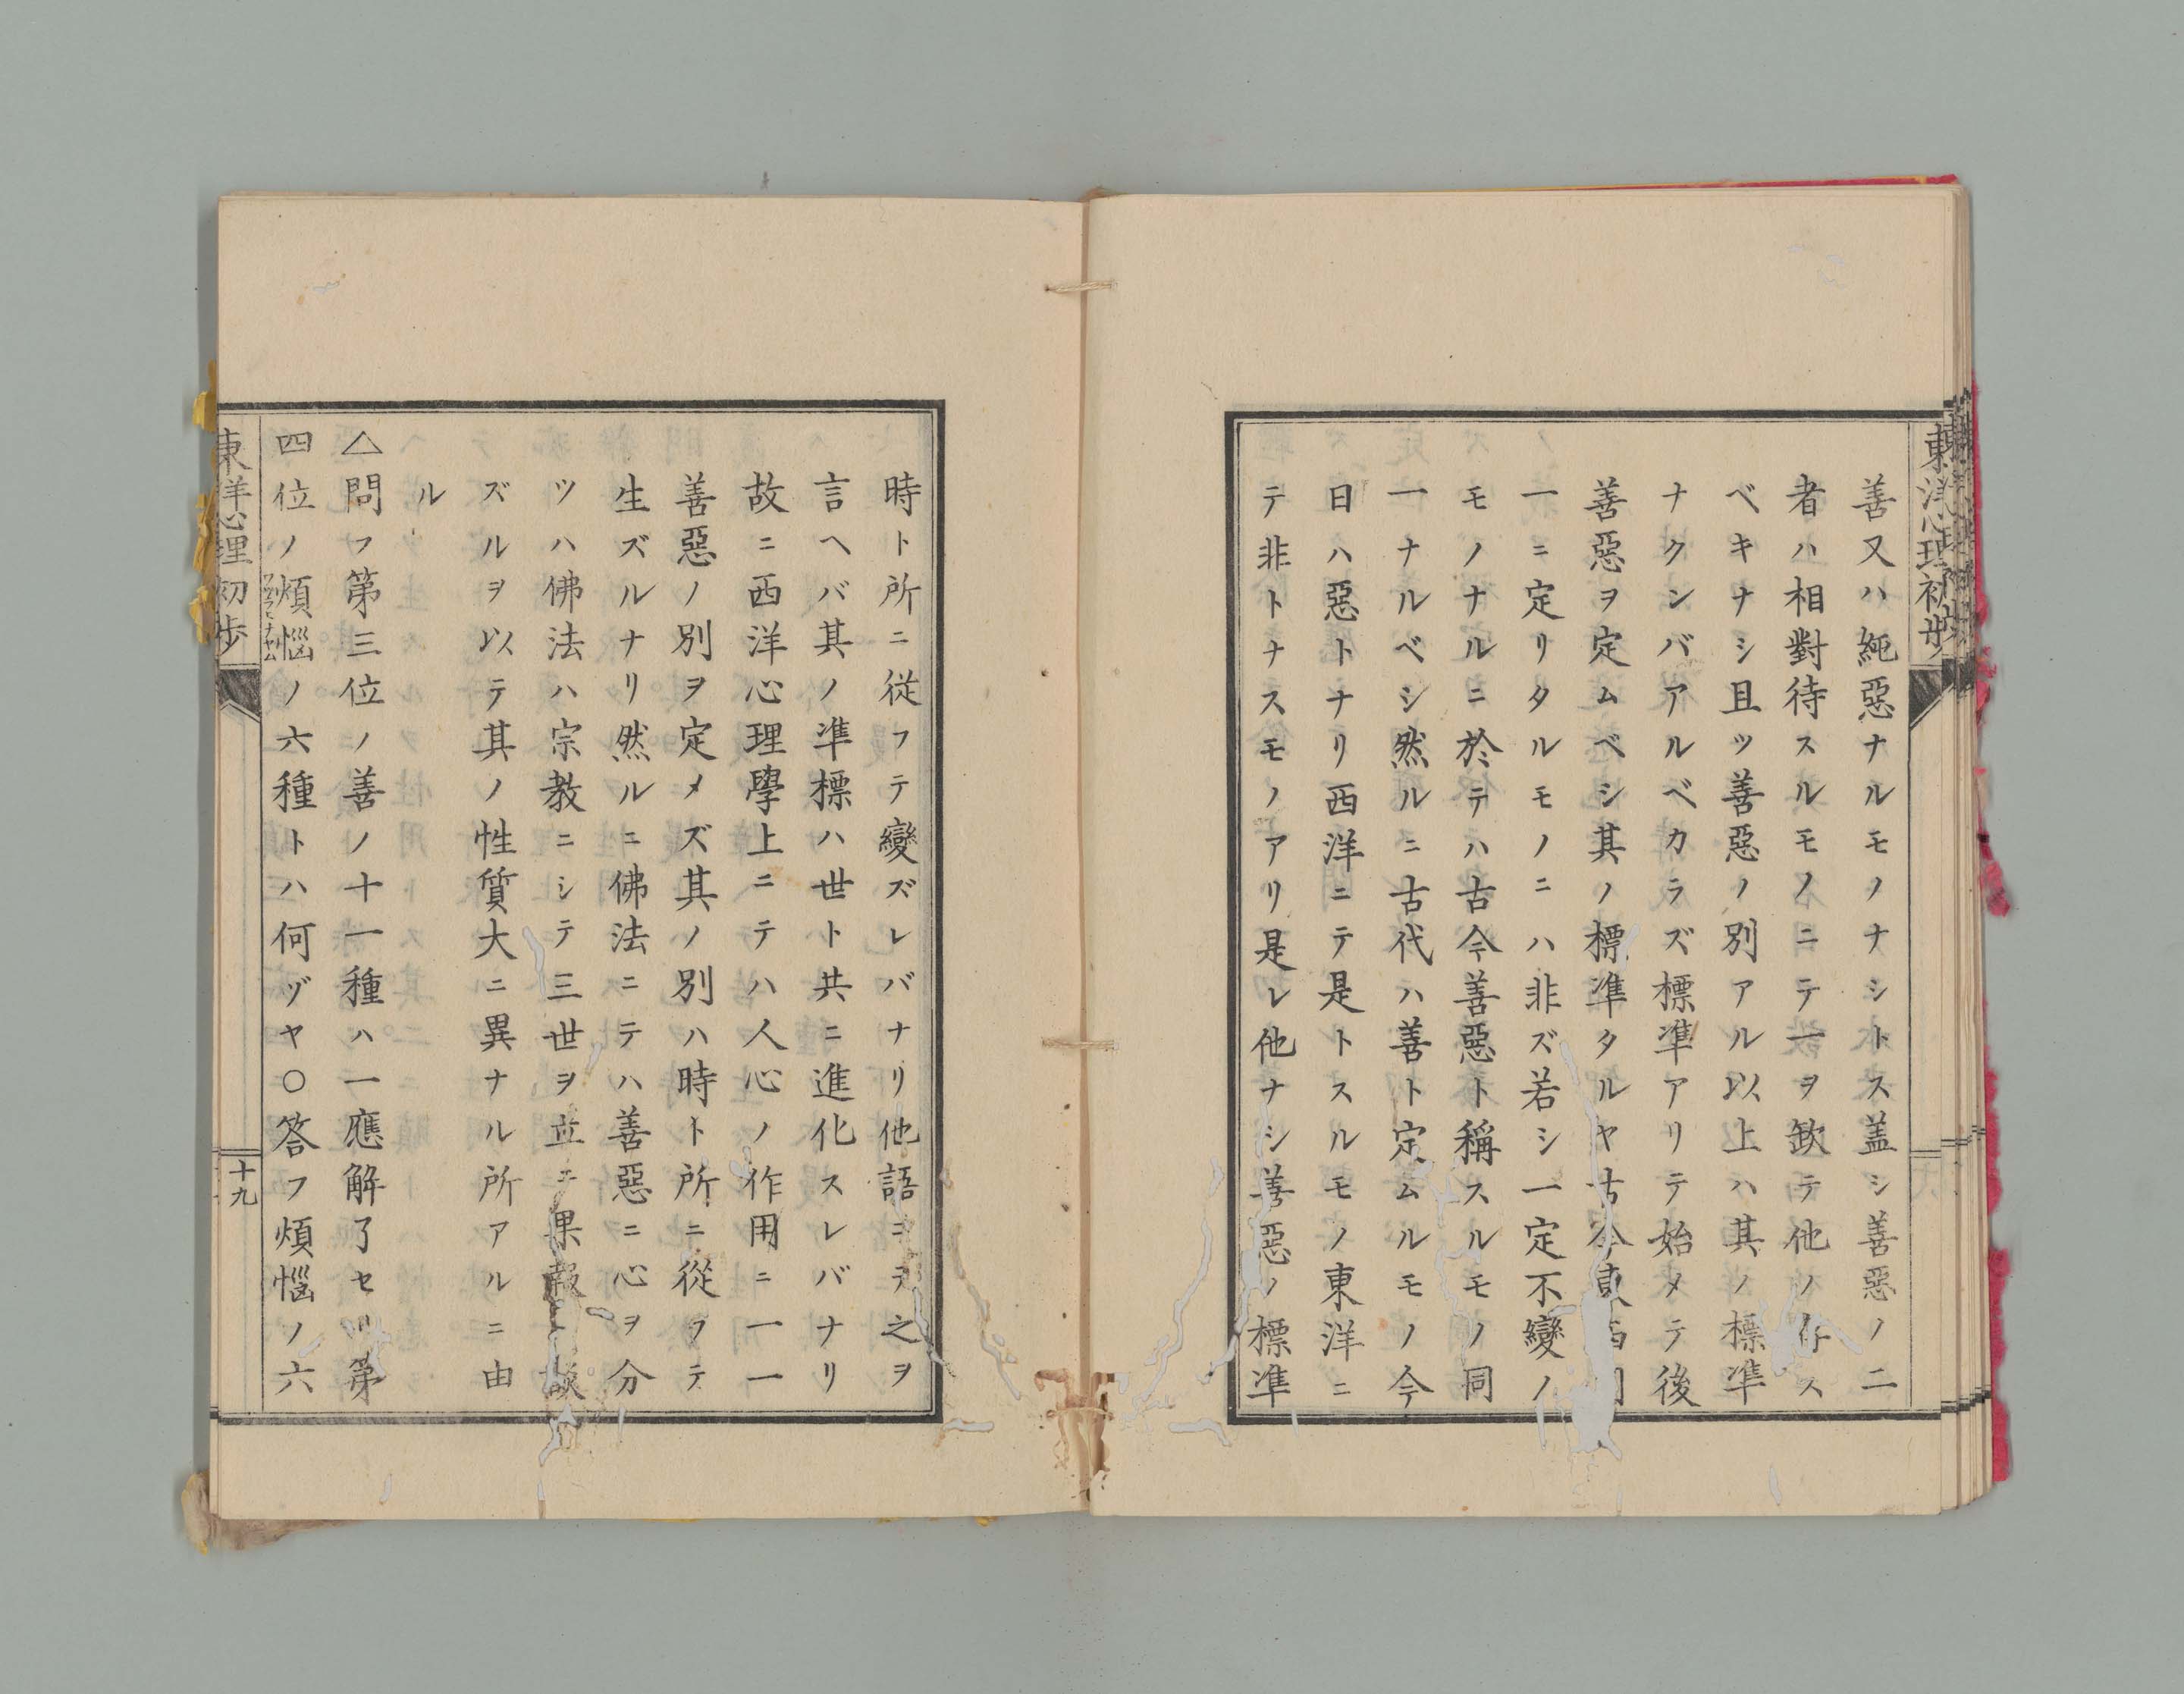 東洋心理初歩
善又ハ純惡ナルモノナシトス盖シ善惡ノ二
者ハ相對待スルモノニテ一ヲ欽テ他ノ存ス
ベキナシ且ツ善惡ノ別アル以上ハ其ノ標準
ナクンバアルベカラズ標準アリテ始メテ後
善惡ヲ定ムベシ其ノ標準タルヤ古今東西同
一ニ定リタルモノニハ非ズ若シ一定不變ノ
モノナルニ於テハ古今善惡ト稱スルモノ同
一ナルベシ然ルニ古代ハ善ト定ムルモノ今
日ハ惡トナリ西洋ニテ是トスルモノ東洋ニ
テ非トナスモノアリ是レ他ナシ善惡ノ標準
時ト所ニ從フテ變ズレバナリ他語ニテ之ヲ
言ヘバ其ノ準標ハ世ト共ニ進化スレバナリ
故ニ西洋心理學上ニテハ人心ノ作用ニ一一
善惡ノ別ヲ定メズ其ノ別ハ時ト所ニ從フテ
生ズルナリ然ルニ佛法ニテハ善惡ニ心ヲ分
ツハ佛法ハ宗教ニシテ三世ヲ立テ果報ヲ談
ズルヲ以テ其ノ性質大ニ異ナル所アルニ由
ル
△問フ第三位ノ善ノ十一種ハ一應解了セリ第
四位ノ煩惱ノ六種トハ何ヅヤ〇答フ煩惱ノ六
東洋心理初歩
十九